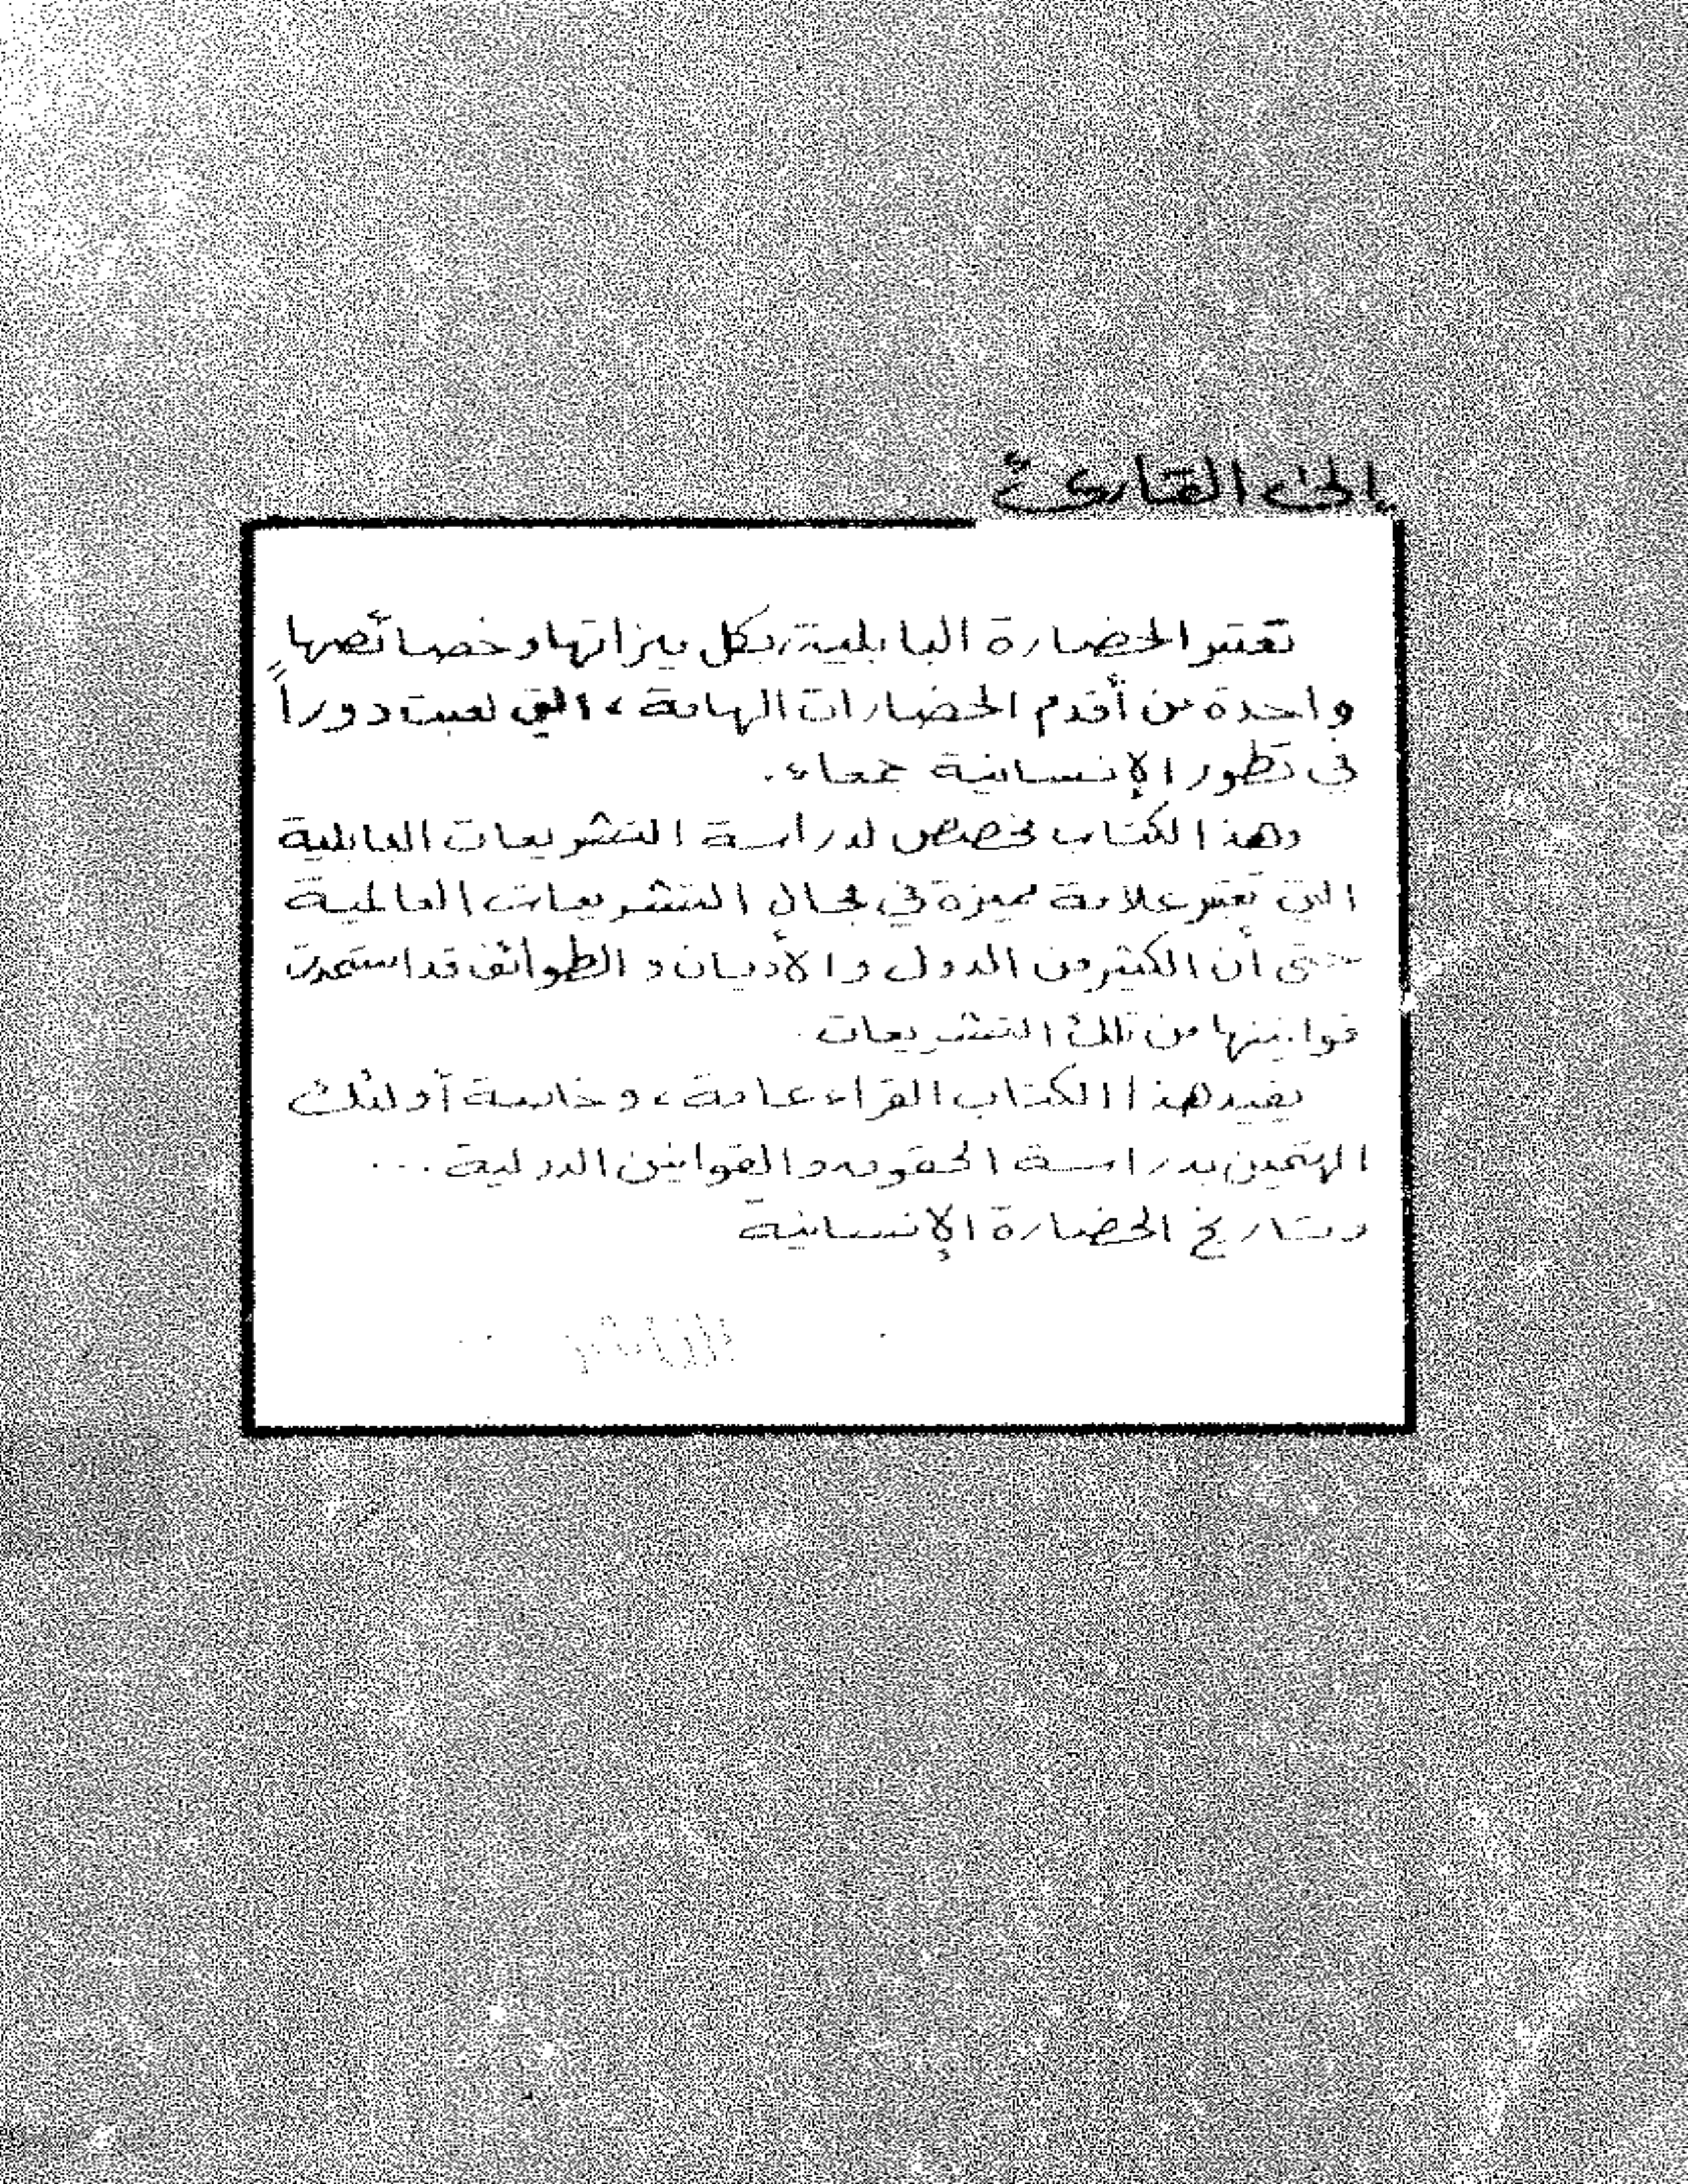 إلى القارئ
تعتبر الحضارة البابلية، بكل ميزاتها وخصائصها
واحدة من أقدم الحضارات الهامة، التي لعبت دوراً
في تطور الإنسانية جمعاء.
وهذا الكتاب مخصص لدراسة التشريعات البابلية
التي تعتبر علامة مميزة في مجال التشريعات العالمية
حتى أن الكثير من الدول والأديان والطوائف قد استمدت
قوانينها من تلك التشريعات.
يفيد هذا الكتاب القراء عامة، وخاصة أولئك
المهتمين بدراسة الحقوق والقوانين الدولية...
وتاريخ الحضارة الإنسانية
الناشر